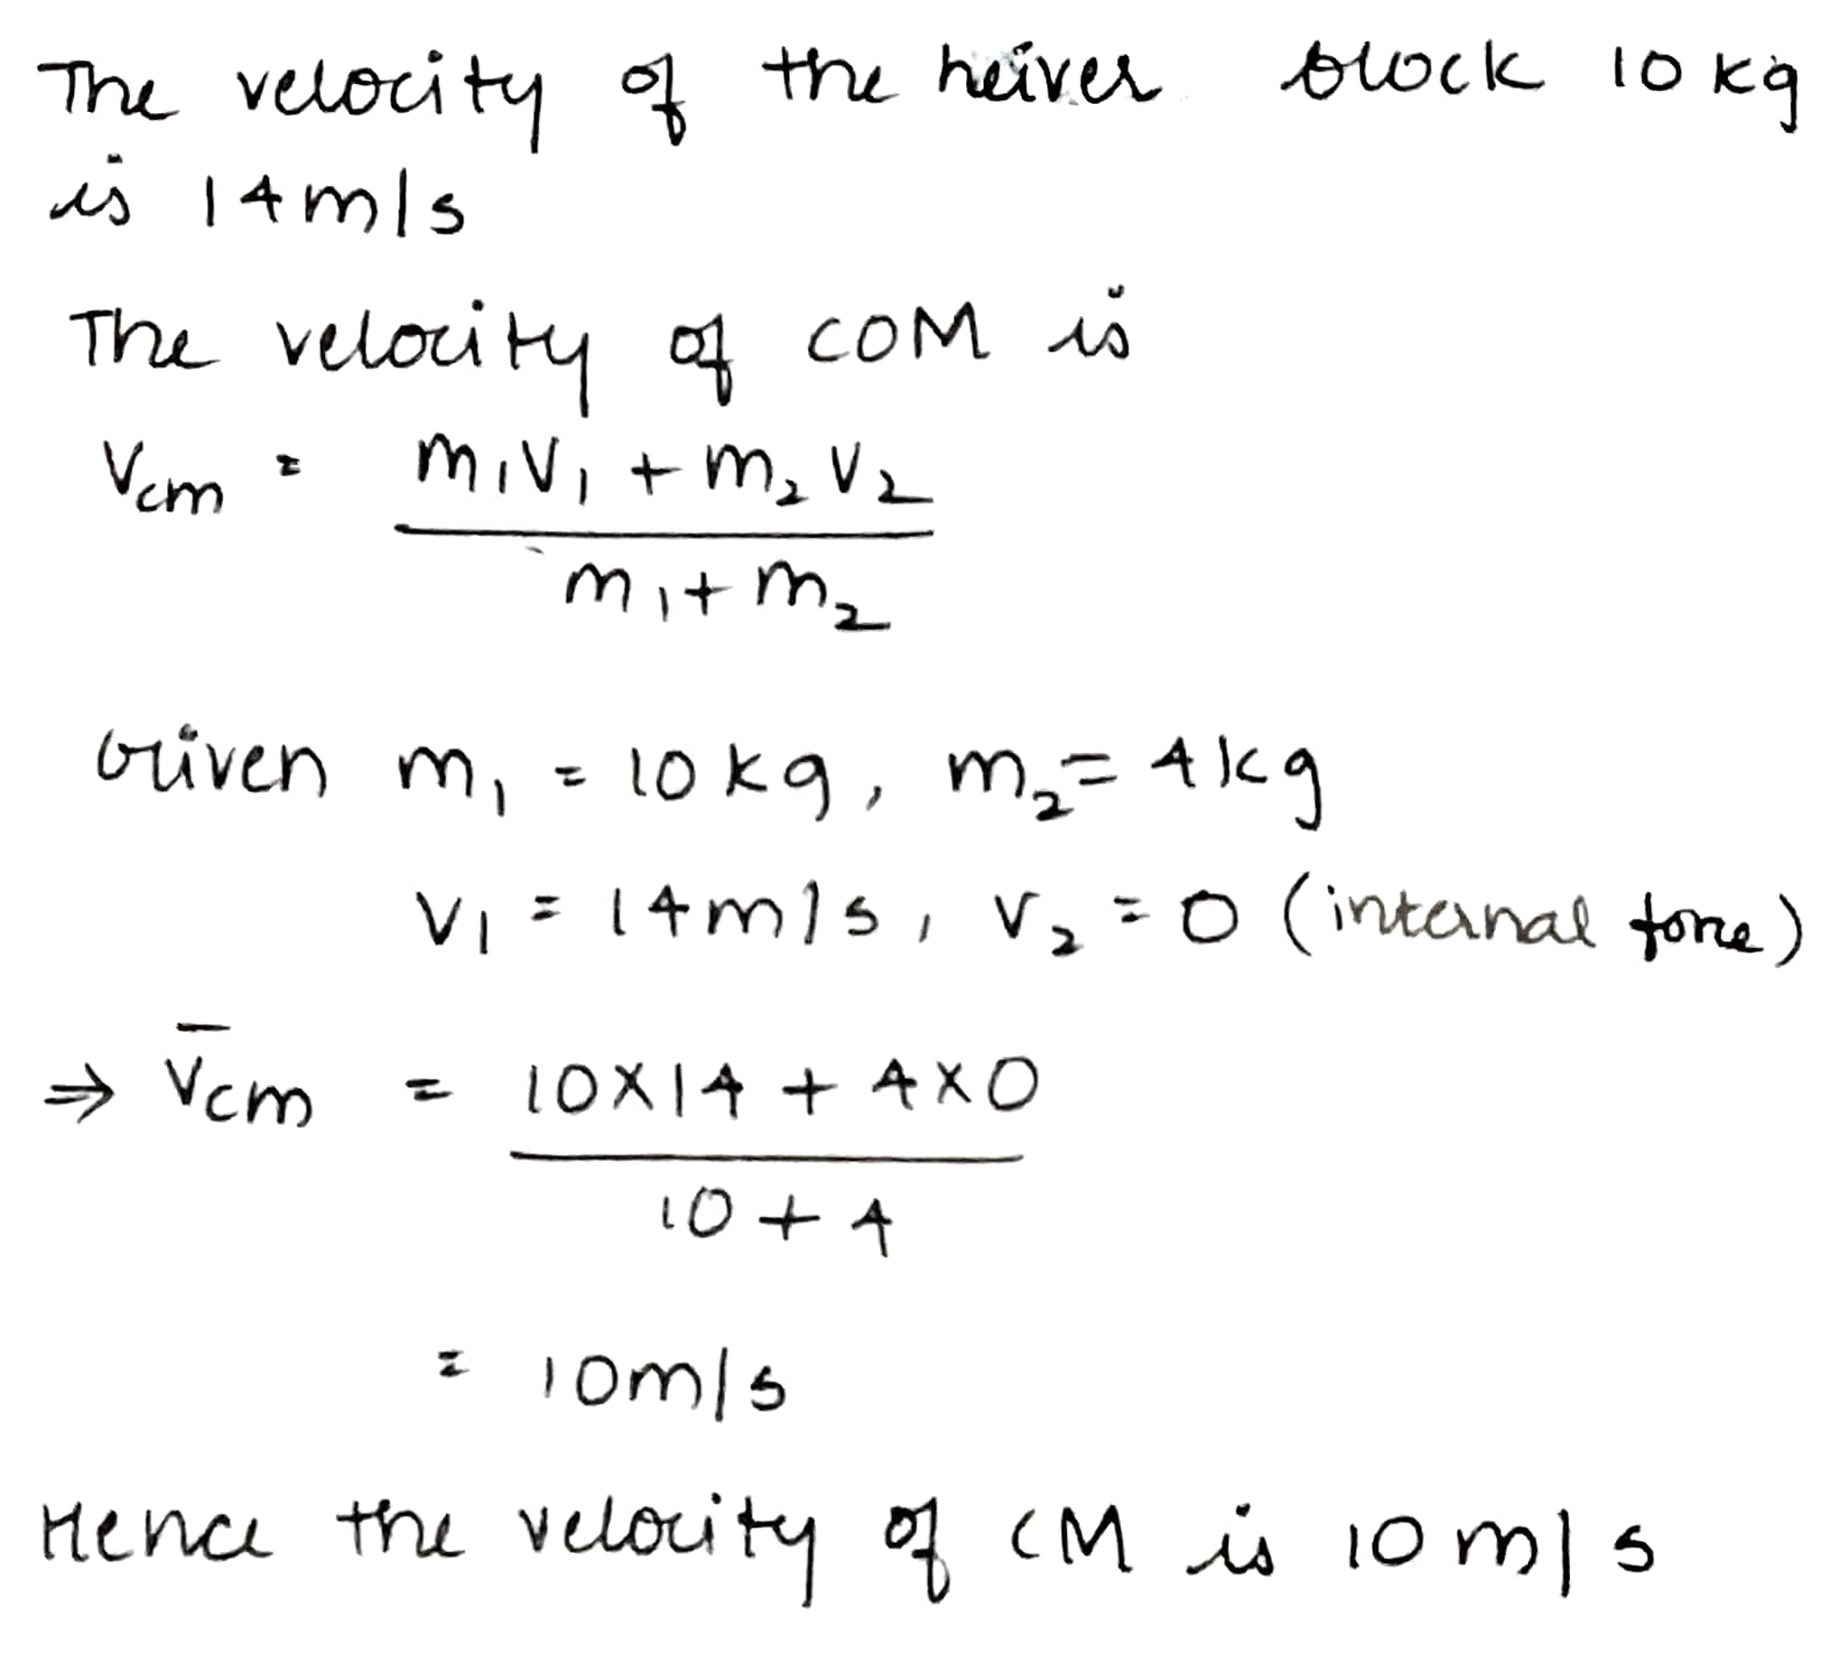 The velocity of the heiver block 10 kg
is 14m/s
The velocity of COM is
Vcm = m1V1 + m2V2
m1 + m2
Given m1 = 10kg, m2 = 4kg
V1 = 14m/s, V2 = 0 (internal force)
⇒ V̅cm = 10×14 + 4×0
10 + 4
= 10m/s
Hence the velocity of CM is 10 m/s